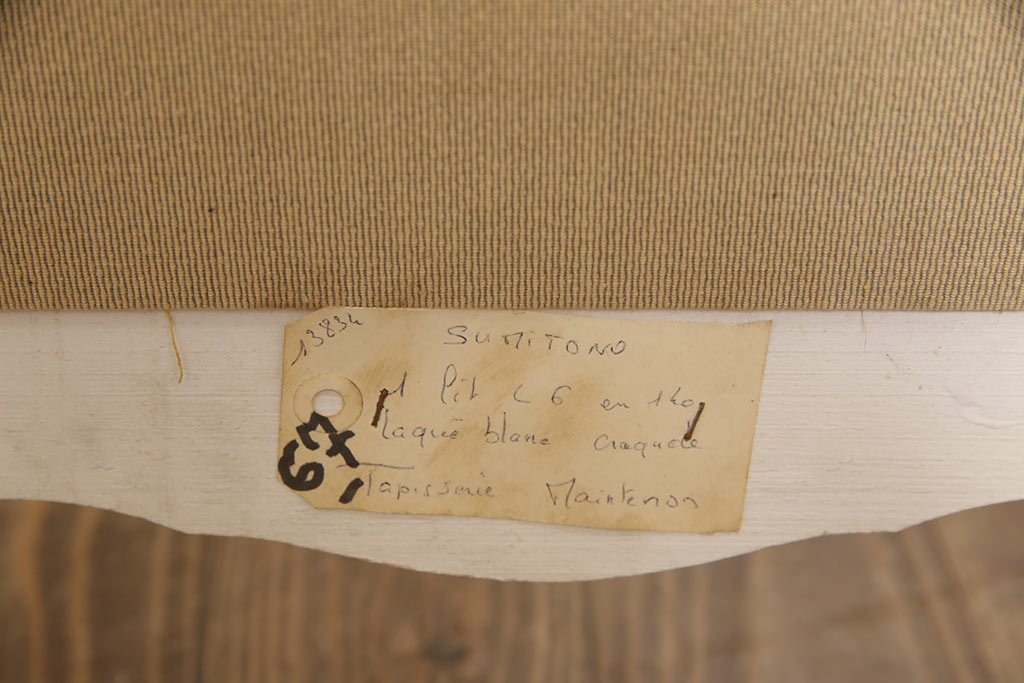 13834
SUMITONO
1 lit L 6 en 140
laqué blanc craquelé
tapisserie Maintenon